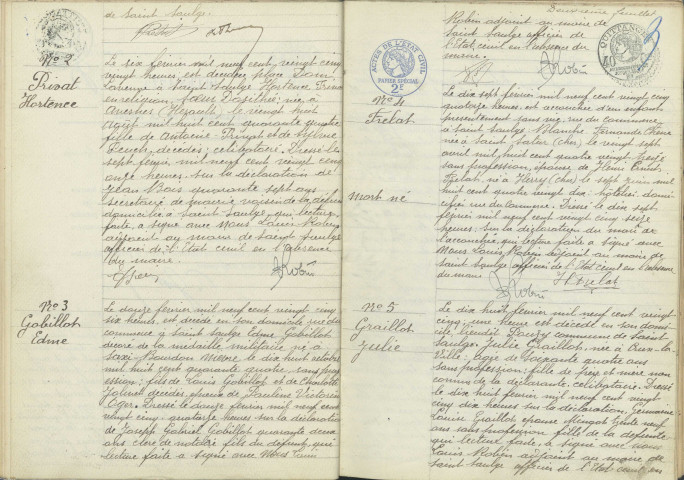 de Saint Saulge.
No 2
Privat
Hortence
Le six février mil neuf cent vingt cinq
vingt heures, est décédée, place Dom
à Saint Saulge Hortence Privat
en religion, sœur Basilisse; née à
(Hérault) le vingt huit
Août mil huit cent quarante quatre
fille de Antoine Privat et de Sylvie
décédés; célibataire. Dressé le
sept février, mil neuf cent vingt cinq
onze heures, sur la déclaration de
Jean Bois quarante sept ans
secrétaire de mairie voisin de la défunte
domicilié à Saint Saulge, qui, lecture
faite, a signé avec Nous Louis Robin
adjoint au maire de Saint Saulge
officier de l'Etat civil en l'absence
du maire.
Robin
No 3
Gobillot
Edme
Le douze février mil neuf cent vingt cinq
six heures, est décédé en son domicile rue du
commerce à Saint Saulge Edme Gobillot
décoré de la médaille militaire né à
Saxi Bourdon Nièvre le dix huit octobre
mil huit cent quarante quatre, sans pro
fession; fils de Louis Gobillot et de Charlotte
décédés, époux de Pauline Victorine
Oger. Dressé le douze février mil neuf cent
vingt cinq quatorze heures sur la déclaration
de Joseph Gabriel Gobillot quarante deux
ans clerc de notaire fils du défunt, qui
lecture faite a signé avec Nous Louis
Deuxième feuillet
Robin adjoint au maire de
Saint Saulge officier de
l'Etat civil en l'absence du
maire.
Robin
ACTES DE L'ÉTAT CIVIL
PAPIER SPÉCIAL
2F
QUITTANCES
No 4
Frelat
mort né
Le dix sept février mil neuf cent vingt cinq
quatorze heures, est accouchée d'un enfant
présentement sans vie, rue du commerce
à Saint Saulge, Blanche Fernande
née à Saint Satur (Cher) le vingt sept
avril mil huit cent quatre vingt seize
sans profession, épouse de Henri Ernest
Frelat né à Herry (Cher) le sept juin mil
huit cent quatre vingt dix hôtelier domi
cilié rue du commerce. Dressé le dix sept
février mil neuf cent vingt cinq seize
heures. Sur la déclaration du mari de
l'accouchée, qui lecture faite a signé avec
Nous Louis Robin adjoint au maire de
Saint Saulge officier de l'Etat civil en l'absence
du maire
H Frelat
Robin
No 5
Graillot
Julie
Le dix huit février mil neuf cent vingt
cinq; une heure est décédée en son domi
cile lieudit commune de Saint
Saulge, Julie Graillot, née à Crux-la-
Ville; âgée de soixante quatre ans
sans profession; fille de père et mère non
connus de la déclarante. célibataire. Dressé
le dix huit février mil neuf cent vingt
cinq dix heures sur la déclaration, Germaine
Louise Graillot épouse trente neuf
ans sans profession, fille de la défunte
qui lecture faite, a signé avec nous
Louis Robin adjoint au maire de
Saint Saulge officier de l'Etat civil en